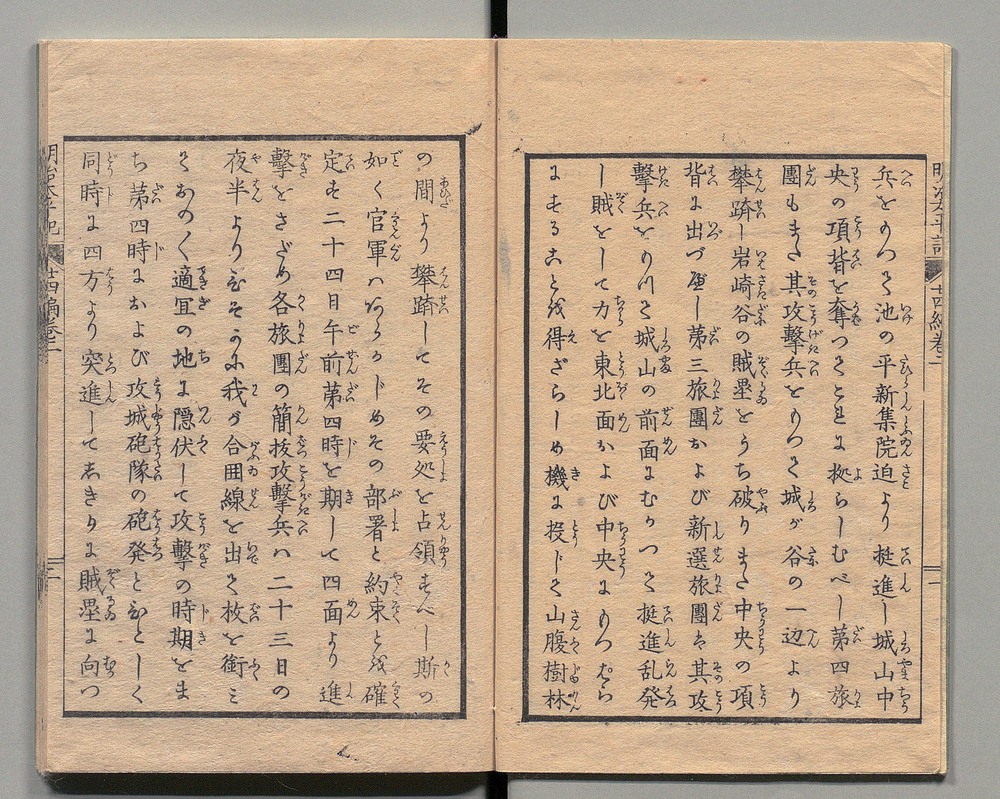 明治太平記 廿四編巻一
兵をもつて池の平新集院迫より挺進し城山中
央の項背を奪つてこれに拠らしむべし第四旅
團もまた其攻擊兵をもつて城が谷の一辺より
攀躋し岩崎谷の賊塁をうち破りまた中央の項
背に出づべし第三旅團および新選旅團は其攻
擊兵を以て城山の前面にむかつて挺進乱発
し賊をして力を東北面および中央にもつぱら
にすることを得ざらしめ機に投じて山腹樹林
の間より攀躋してその要処を占領すべし斯の
如く官軍はあらかじめその部署と約束とを確
定す二十四日午前第四時を期して四面より進
擊をさだめ各旅團の簡抜攻擊兵は二十三日の
夜半よりひそかに我が合囲線を出て枚を銜み
ておの〱適宜の地に隠伏して攻擊の時期をま
ち第四時におよび攻城砲隊の砲発とひとしく
同時に四方より突進してしきりに賊塁に向つ
明治太平記 廿四編巻一